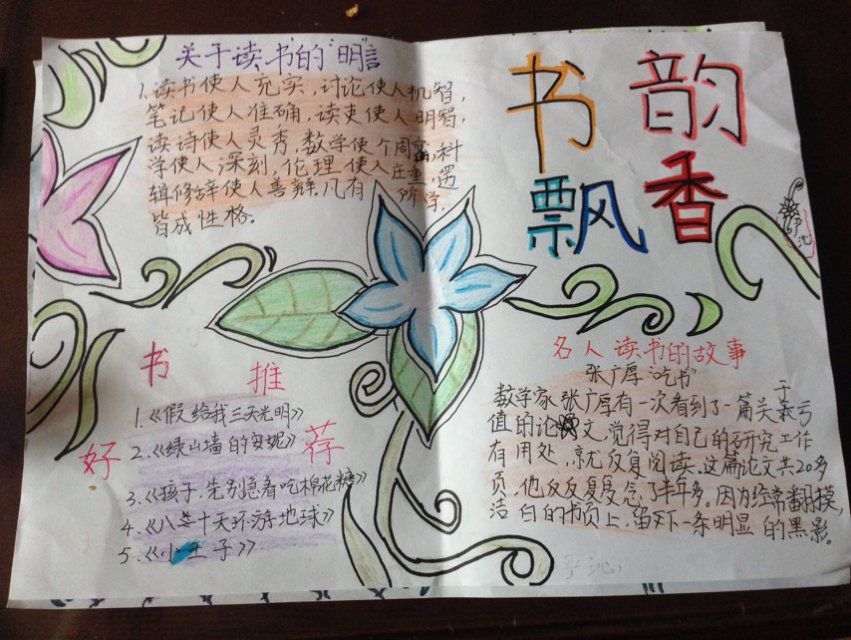 关于读书的"明"言
1.读书使人充实,讨论使人机智,
笔记使人准确,读史使人明智,
读诗使人灵秀,数学使个周密,科
学使人深刻,伦理使人庄重,逻
辑修辞使人善辩.凡有所学,
皆成性格。
书韵
飘香
好书推荐
1.《假给我三天光明》
2.《绿山墙的安妮》
3.《孩子,先别急着吃棉花糖》
4.《八十天环游地球》
5.《小王子》
名人读书的故事
张广厚"吃书"
数学家张广厚有一次看到了一篇关于
值的论文,觉得对自己的研究工作
有用处,就反复阅读.这篇论文共20多
员,他反反复复念了半年多。因为经常翻摸,
洁白的书页上,留下一条明显的黑影。